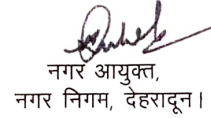 नगर आयुक्त,
नगर निगम, देहरादून।